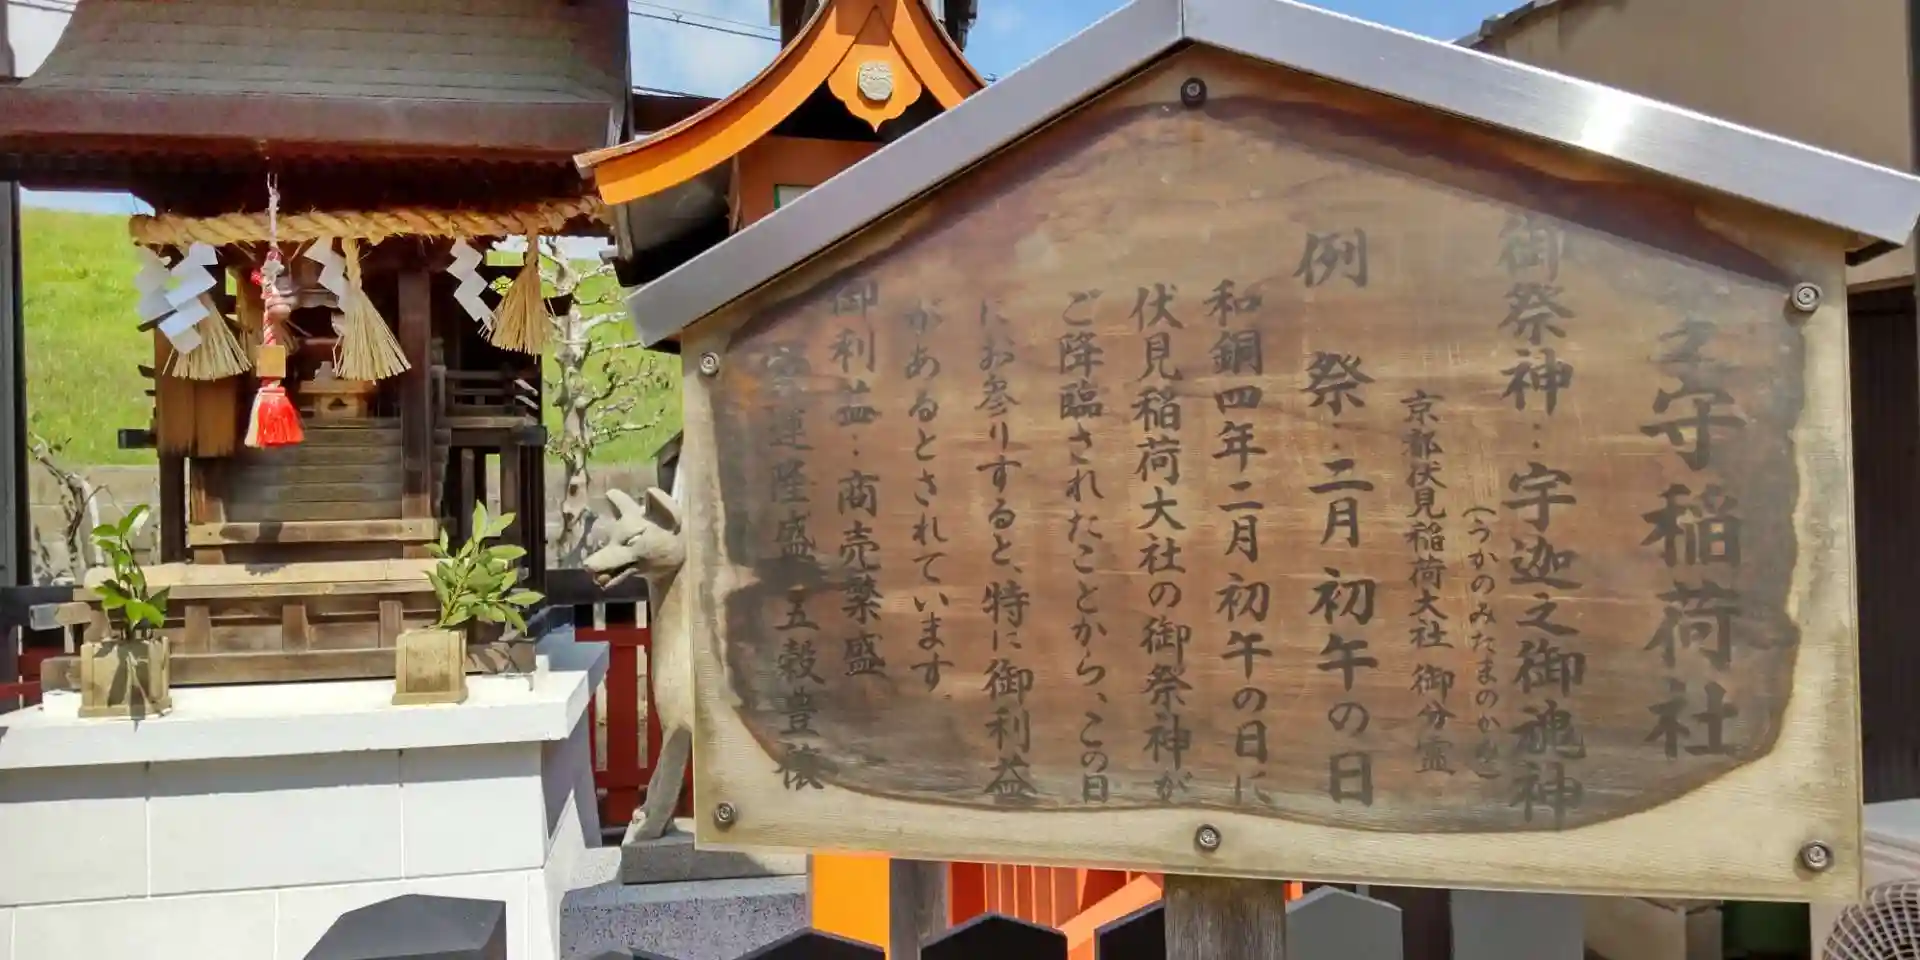 守稲荷社
御祭神…宇迦之御魂神
(うかのみたまのかみ)
京都伏見稲荷大社 御分霊
例 祭…二月 初午の日
和銅四年二月初午の日に
伏見稲荷大社の御祭神が
ご降臨されたことから、この日
にお参りすると、特に御利益
があるとされています。
御利益…商売繁盛
運隆盛 五穀豊穣